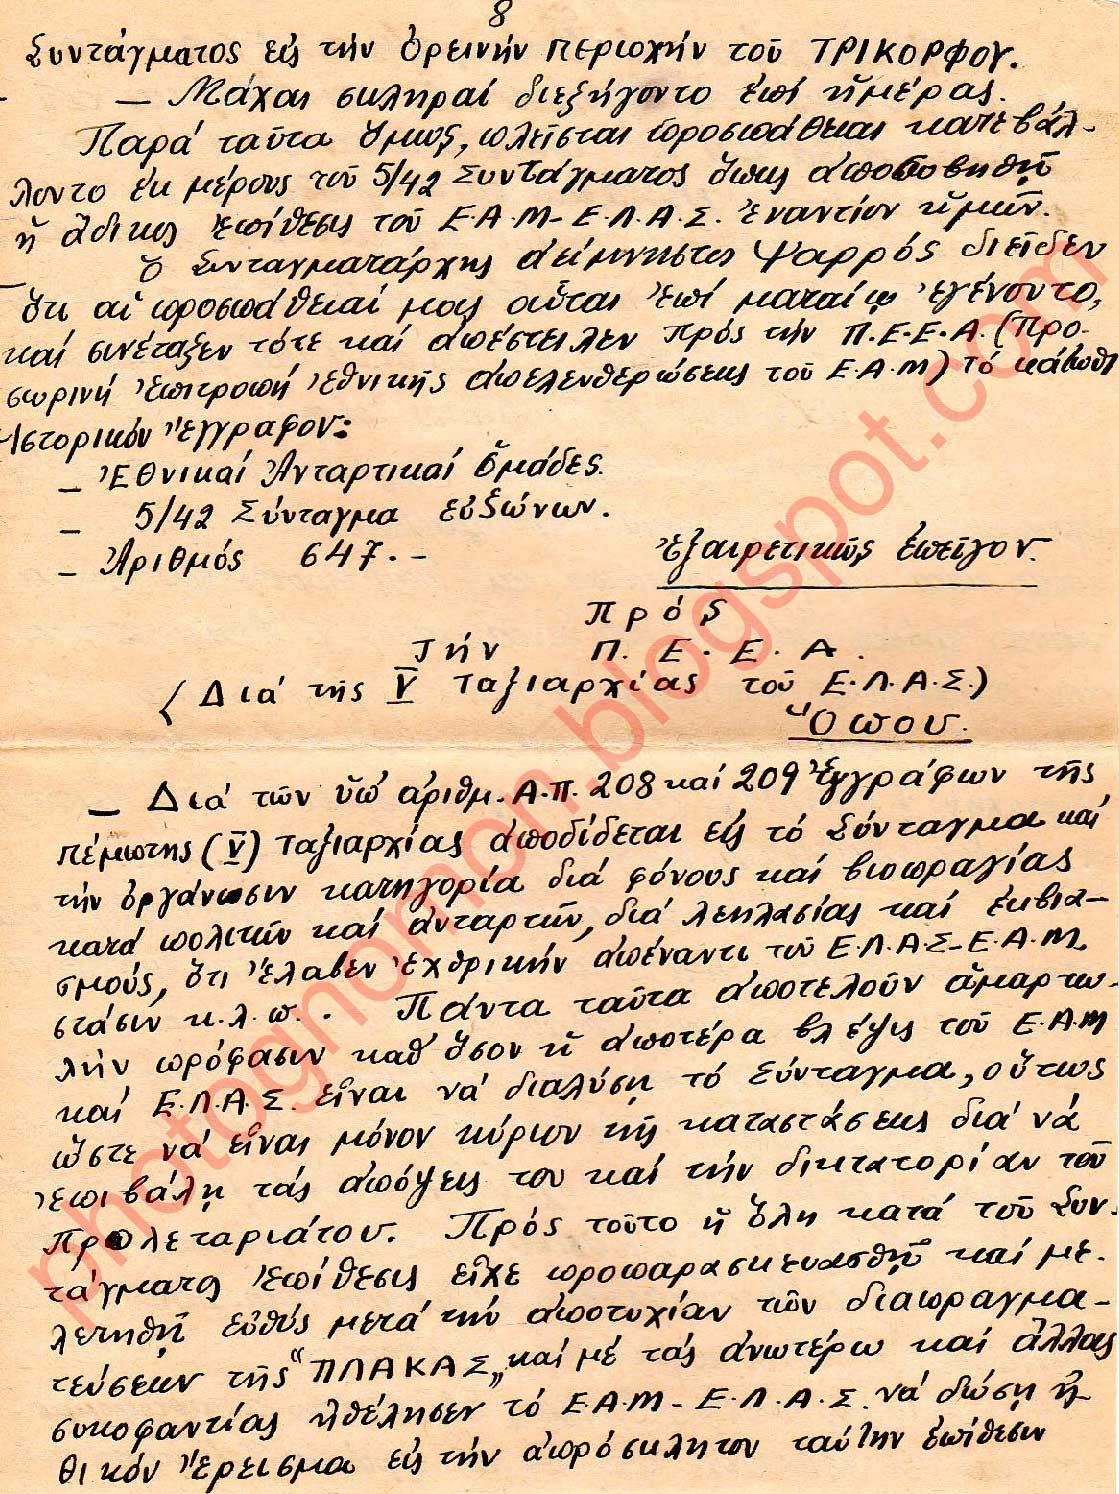 8
Συντάγματος εἰς τήν ὀρεινήν περιοχήν τοῦ ΤΡΙΚΟΡΦΟΥ.
— Μάχαι σκληραί διεξήγοντο ἐπί ἡμέρας.
Παρά ταῦτα ὅμως, πλεῖσται προσπάθειαι κατεβάλ-
λοντο ἐκ μέρους τοῦ 5/42 Συντάγματος ὅπως ἀποσοβηθῇ
ἡ ἄδικος ἐπίθεσις τοῦ Ε.Α.Μ-Ε.Λ.Α.Σ. ἐναντίον ἡμῶν.
Ὁ Συνταγματάρχης ἀείμνηστος Ψαρρός διεῖδεν
ὅτι αἱ προσπάθειαί μας αὗται ἐπί ματαίῳ ἐγένοντο,
καί συνέταξεν τότε καί ἀπέστειλεν πρός τήν Π.Ε.Ε.Α. (Προ-
σωρινή ἐπιτροπή ἐθνικῆς ἀπελευθερώσεως τοῦ Ε.Α.Μ) τό κάτωθι
ἱστορικόν ἔγγραφον:
— Ἐθνικαί Ἀνταρτικαί Ὁμάδες.
— 5/42 Σύνταγμα εὐζώνων.
— Ἀριθμός 647.-
Ἐξαιρετικῶς ἐπεῖγον.
Πρός
Τήν Π.Ε.Ε.Α.
(Διά τῆς V Ταξιαρχίας τοῦ Ε.Λ.Α.Σ.)
Ὅπου.
— Διά τῶν ὑπ' ἀριθμ. Α.Π. 208 καί 209 ἐγγράφων τῆς
πέμπτης (V) Ταξιαρχίας ἀποδίδεται εἰς τό Σύνταγμα καί
τήν ὀργάνωσιν κατηγορία διά φόνους καί βιοπραγίας
κατά πολιτῶν καί ἀνταρτῶν, διά λεηλασίας καί ἐκβια-
σμούς, ὅτι ἔλαβεν ἐχθρικήν ἀπέναντι τοῦ Ε.Λ.Α.Σ-Ε.Α.Μ.
στάσιν κ.λ.π.. Πάντα ταῦτα ἀποτελοῦν ἁμαρτω-
λήν πρόφασιν καθ' ὅσον ἡ ἀπωτέρα βλέψις τοῦ Ε.Α.Μ
καί Ε.Λ.Α.Σ. εἶναι νά διαλύσῃ τό Σύνταγμα, οὕτως
ὥστε νά εἶναι μόνον κύριον τῆς καταστάσεως διά νά
ἐπιβάλῃ τάς ἀπόψεις του καί τήν δικτατορίαν τοῦ
Προλεταριάτου. Πρός τοῦτο ἡ ὅλη κατά τοῦ Συν-
τάγματος ἐπίθεσις εἶχε προπαρασκευασθῇ καί με-
λετηθῇ εὐθύς μετά τήν ἀποτυχίαν τῶν διαπραγμα-
τεύσεων τῆς "ΠΛΑΚΑΣ" καί μέ τάς ἀνωτέρω καί ἄλλας
συκοφαντίας ἠθέλησεν τό Ε.Α.Μ-Ε.Λ.Α.Σ. νά δώσῃ ἠ-
θικόν ἔρεισμα εἰς τήν ἀπρόσκλητον ταύτην ἐπίθεσιν
photognomon.blogspot.com